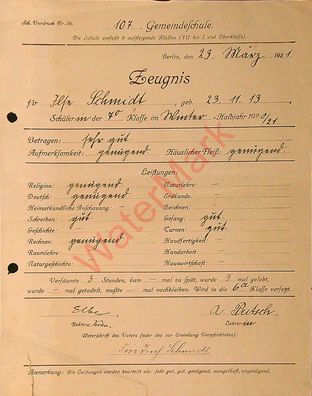 Sch. Vordruck Nr. 56.
107. Gemeindeschule.
Die Schule umfaßt 8 aufsteigende Klassen (VII bis I und Oberklasse).
Berlin, den 23. März 1921.
Zeugnis
für Ilse Schmidt, geb. 23. 11. 13,
Schülerin der 7a Klasse im Winter-Halbjahr 1920/21
Betragen: sehr gut
Aufmerksamkeit: genügend Häuslicher Fleiß: genügend
Leistungen:
Religion: genügend Naturlehre: —
Deutsch: genügend Erdkunde: —
Heimatkundliche Anschauung: Zeichnen: —
Schreiben: gut Gesang: gut
Geschichte: — Turnen: gut
Rechnen: genügend Handfertigkeit: —
Raumlehre: Handarbeit —
Naturgeschichte: Hauswirtschaft: —
Versäumte 3 Stunden, kam — mal zu spät, wurde 3 mal gelobt,
wurde — mal getadelt, mußte — mal nachbleiben. Wird in die 6a Klasse versetzt.
Rektor. Lehrerin
Unterschrift des Vaters (oder des zur Erziehung Verpflichteten):
Schmidt.
Anmerkung: Die Leistungen werden beurteilt als: sehr gut, gut, genügend, mangelhaft, ungenügend.
WaterMark